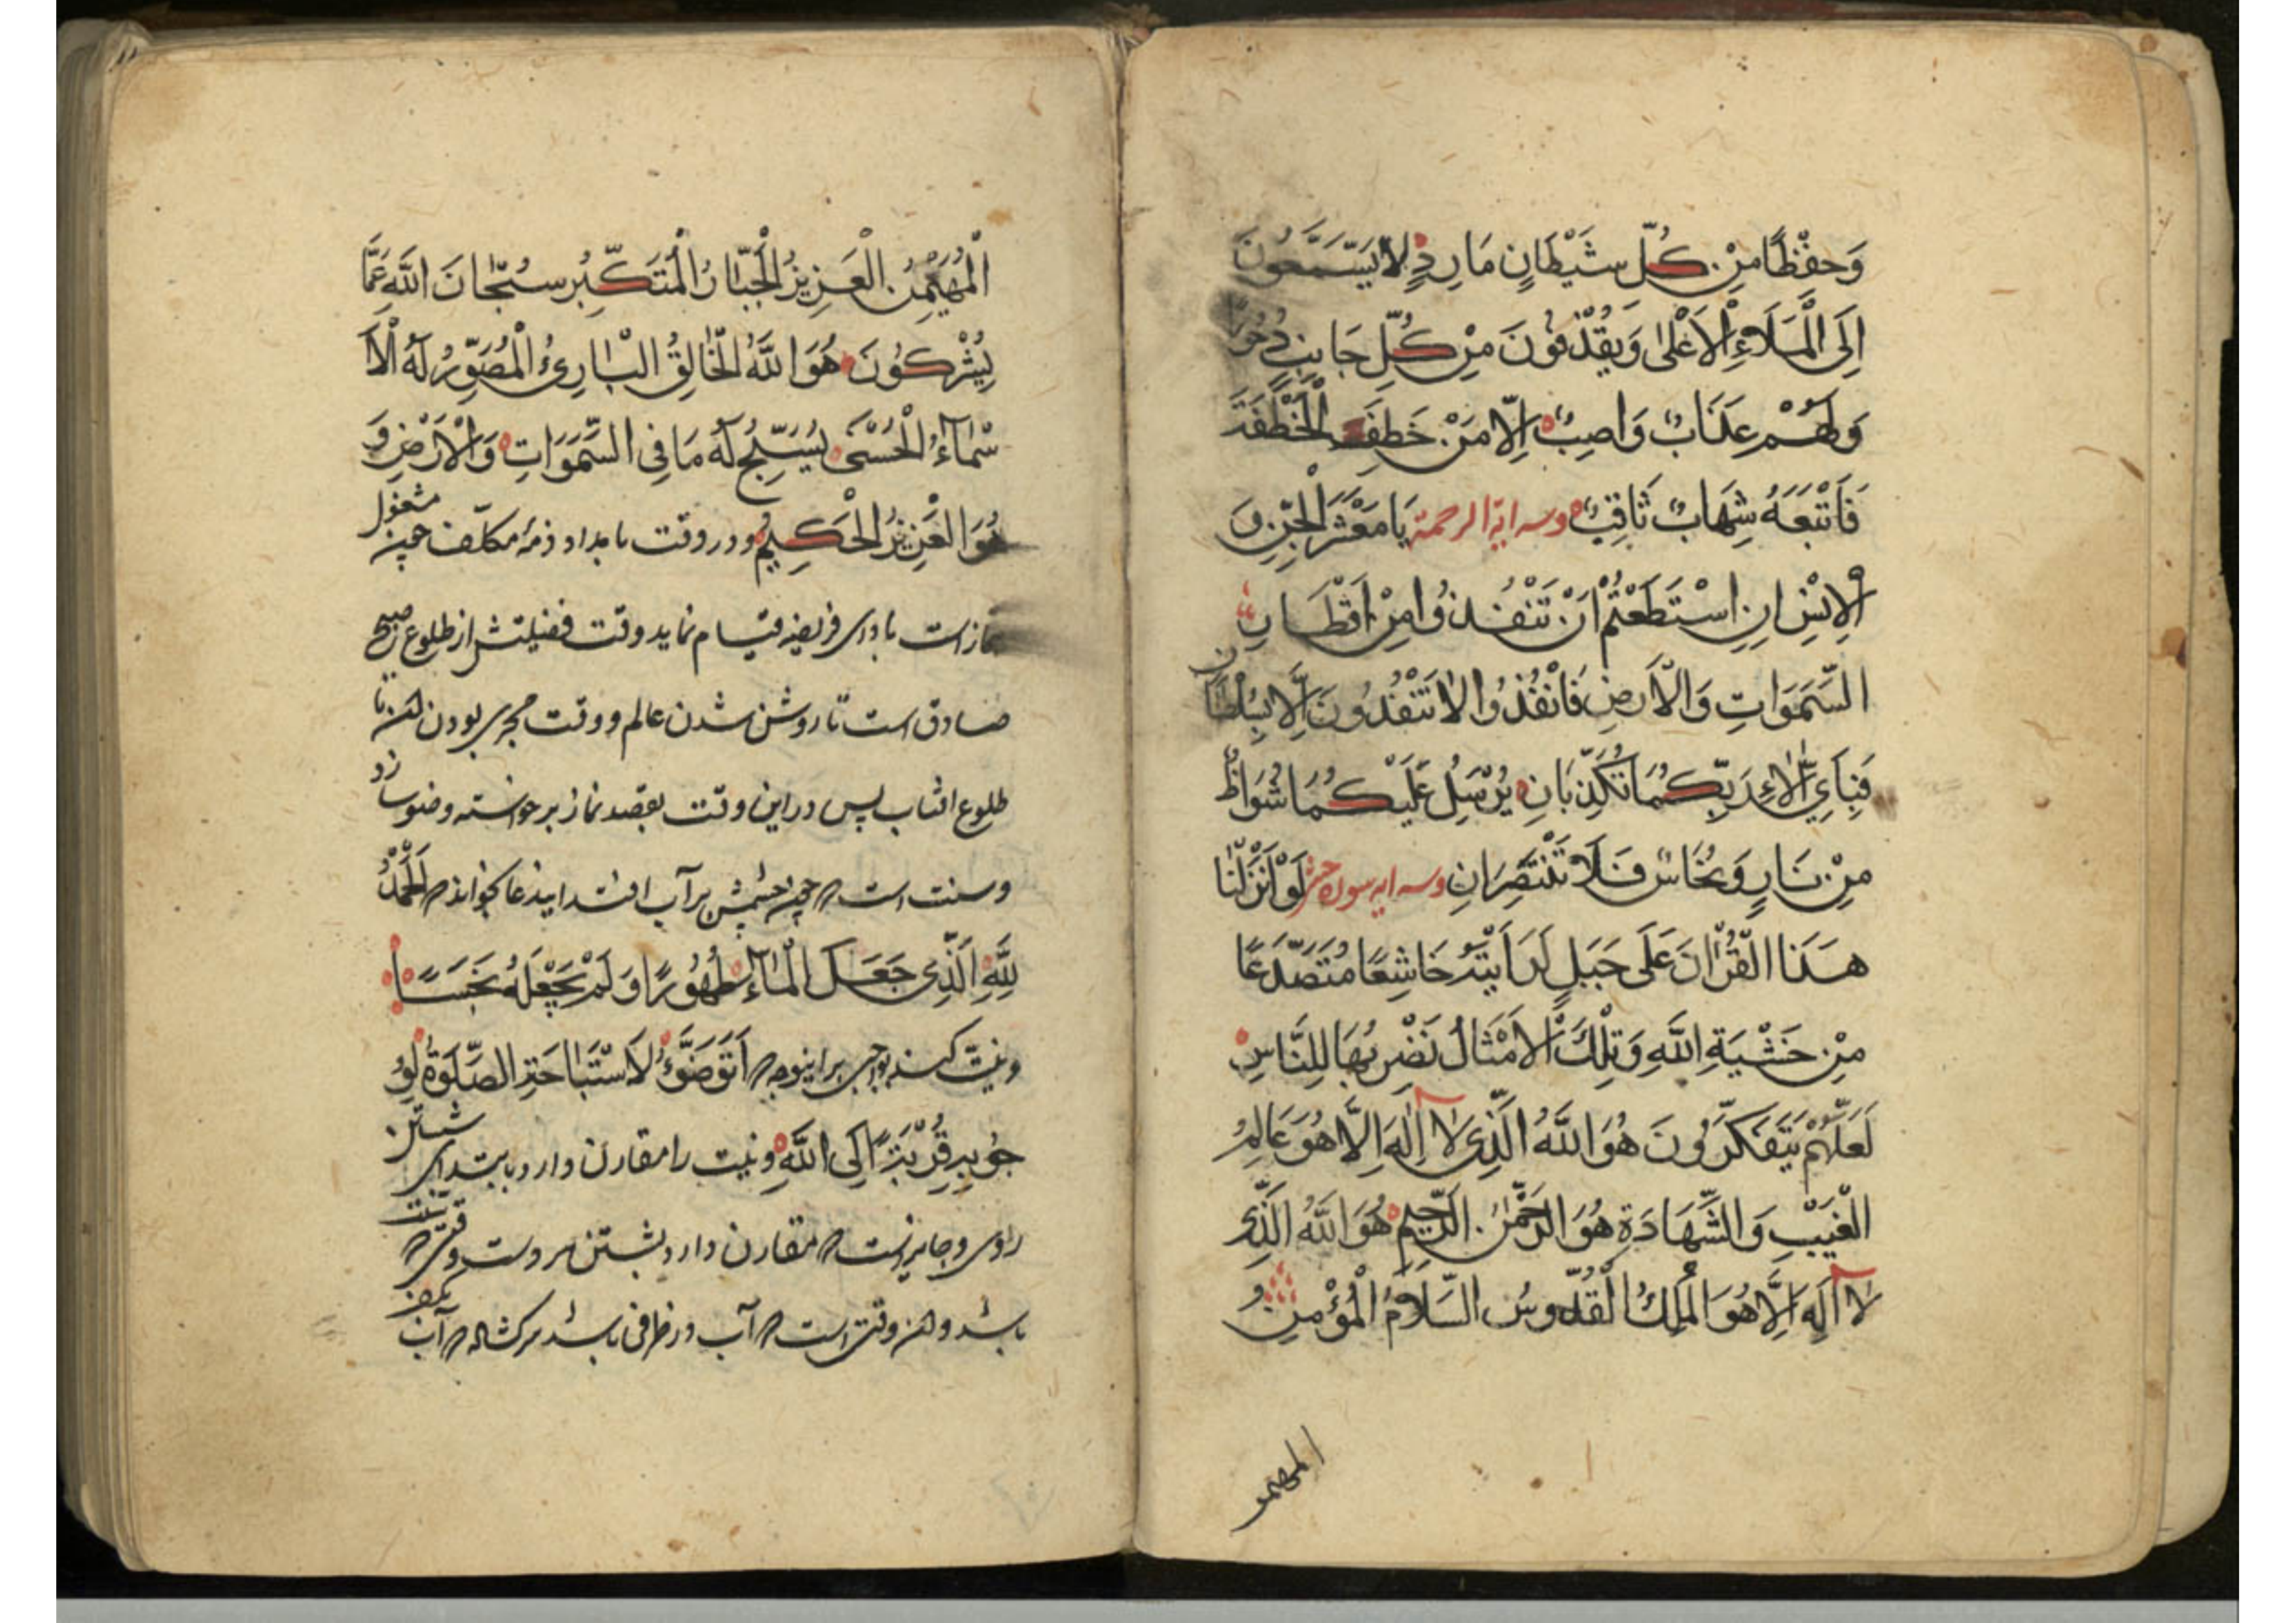 وَحِفْظًا مِنْ كُلِّ شَيْطَانٍ مَارِدٍ لَا يَسَّمَّعُونَ
اِلَی الْمَلَاءِ الْاَعْلٰی وَيُقْذَفُونَ مِنْ كُلِّ جَانِبٍ دُحُورًا
وَلَهُمْ عَذَابٌ وَاصِبٌ اِلَّا مَنْ خَطِفَ الْخَطْفَةَ
فَاَتْبَعَهُ شِهَابٌ ثَاقِبٌ وسه اية الرحمة يَا مَعْشَرَ الْجِنِّ وَ
الْاِنْسِ اِنِ اسْتَطَعْتُمْ اَنْ تَنْفُذُوا مِنْ اَقْطَارِ
السَّمَوَاتِ وَالْاَرْضِ فَانْفُذُوا لَا تَنْفُذُونَ اِلَّا بِسُلْطَانٍ
فَبِاَيِّ اٰلَاءِ رَبِّكُمَا تُكَذِّبَانِ يُرْسَلُ عَلَيْكُمَا شُوَاظٌ
مِنْ نَارٍ وَنُحَاسٌ فَلَا تَنْتَصِرَانِ وسه ايه سوره حشر لَوْ اَنْزَلْنَا
هَذَا الْقُرْاٰنَ عَلَی جَبَلٍ لَرَاَيْتَهُ خَاشِعًا مُتَصَدِّعًا
مِنْ خَشْيَةِ اللّٰهِ وَتِلْكَ الْاَمْثَالُ نَضْرِبُهَا لِلنَّاسِ
لَعَلَّهُمْ يَتَفَكَّرُونَ هُوَ اللّٰهُ الَّذِی لَا اِلٰهَ اِلَّا هُوَ عَالِمُ
الْغَيْبِ وَالشَّهَادَةِ هُوَ الرَّحْمٰنُ الرَّحِيمُ هُوَ اللّٰهُ الَّذِی
لَا اِلٰهَ اِلَّا هُوَ الْمَلِكُ الْقُدُّوسُ السَّلَامُ الْمُؤْمِنُ
المهيمن
الْمُهَيْمِنُ الْعَزِيزُ الْجَبَّارُ الْمُتَكَبِّرُ سُبْحَانَ اللّٰهِ عَمَّا
يُشْرِكُونَ هُوَ اللّٰهُ الْخَالِقُ الْبَارِئُ الْمُصَوِّرُ لَهُ الْاَ
سْمَاءُ الْحُسْنَی يُسَبِّحُ لَهُ مَا فِی السَّمَوَاتِ وَالْاَرْضِ وَ
هُوَ الْعَزِيزُ الْحَكِيمُ ودر وقت بامداد ذمهٔ مكلّف چون مشغول
نماز است بادای فريضه قيام نمايد وقت فضيلتش از طلوع صبح
صادق است تا روشن شدن عالم ووقت مجزی بودن تا
طلوع افتاب پس دراين وقت بقصد نماز برخواسته وضو سازد
وسنت است كه چون چشمش برآب افتد ايندعا بخواند كه اَلْحَمْدُ
لِلّٰهِ الَّذِی جَعَلَ الْمَاءَ طَهُورًا وَلَمْ يَجْعَلْهُ نَجَسًا
ونيّت كند براينوجه كه اَتَوَضَّؤُ لِاسْتِبَاحَةِ الصَّلَوةِ لِوُ
جُوبِهِ قُرْبَةً اِلَی اللّٰهِ ونيت را مقارن دارد بابتدای شستن
روی وجايز است كه مقارن دارد بشستن هر دو دست وقتی كه سنّت
باشد و وقتی است كه آب در ظرفی باشد سركشاده كه آب بكف